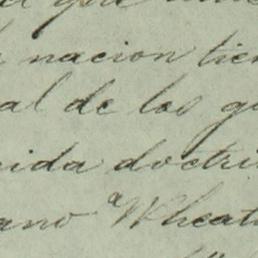 nacion tien
al de los g
cida doctri
ano Wheat